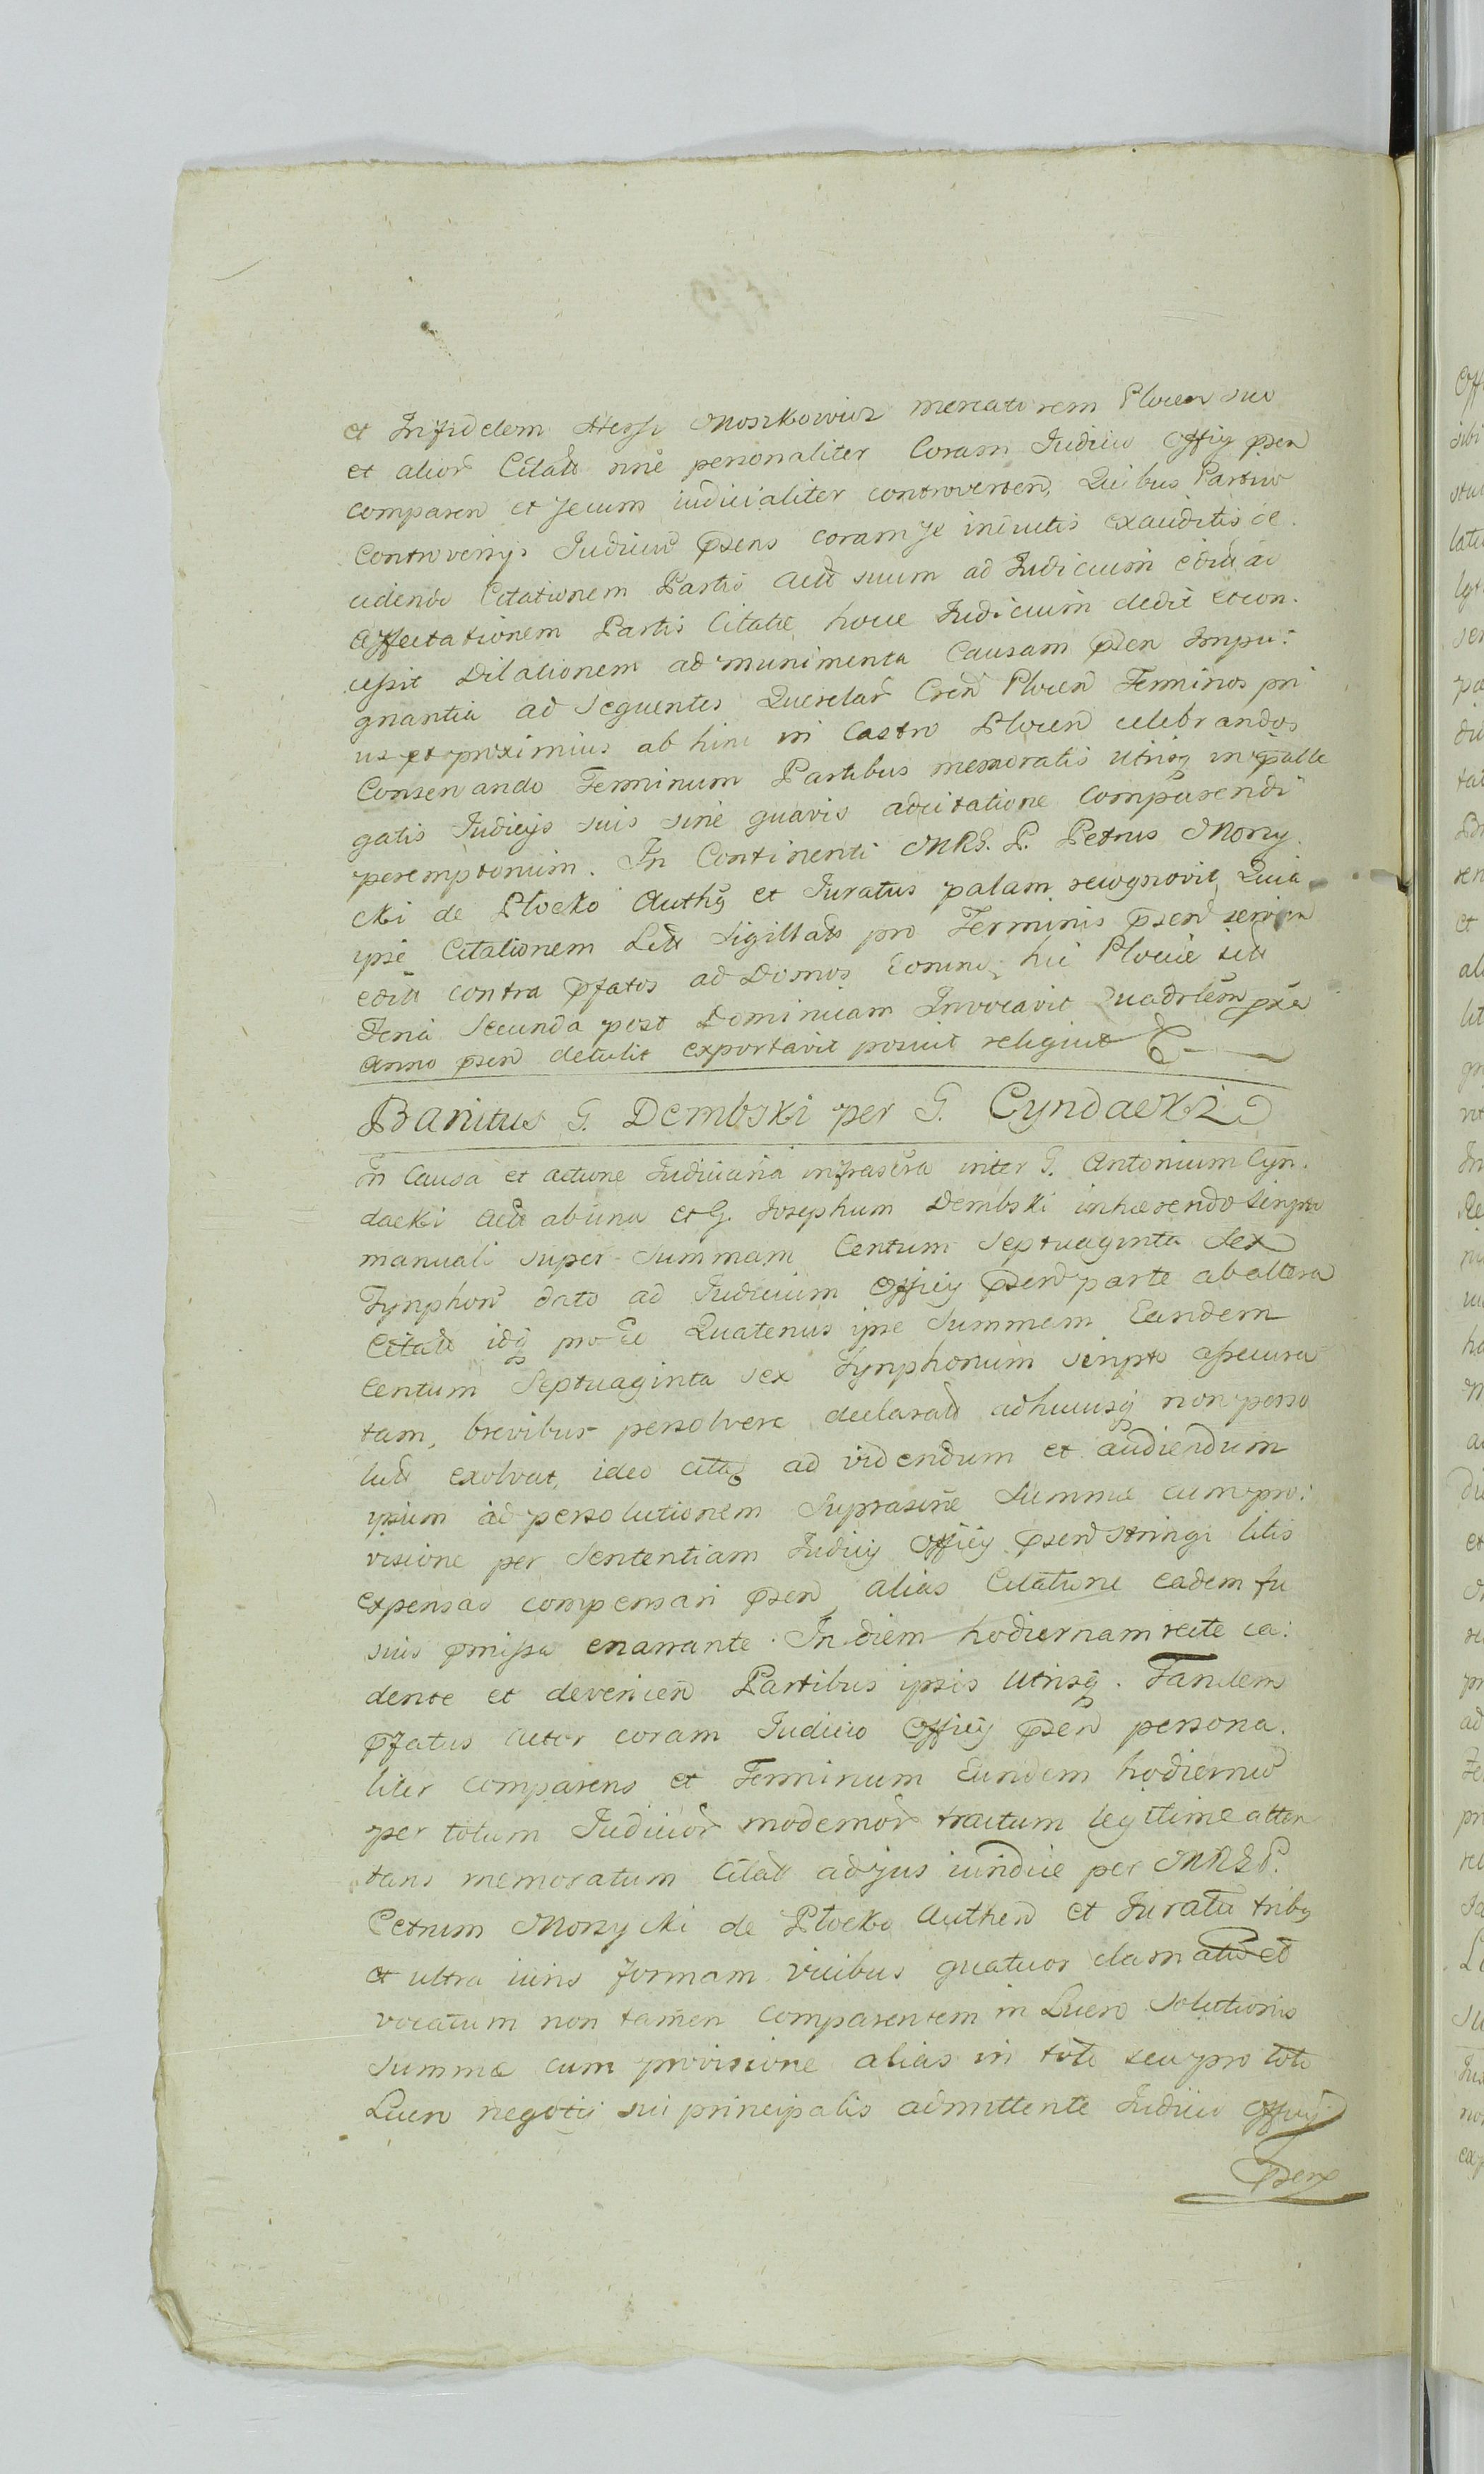 et Infidelem Moszkowicz mercatorem Plocen suo
et alior Citatt nne personaliter Coram Iudicio Officy psen
comparen et secum iudicialiter controverten, Quibus Partiu
Controversys Iudiciu psens coram se inductis exauditis de.
cidendo Citationem Partis Actt suum ad Iudicium
Affectationem Partis Citatæ hocce Iudicium dedit etcon.
cessit Dilationem ad munimenta Causam psen Impu:
gnantia ad sequentes Querelar Cren Plocen Terminos pri
us et proximius ab hinc in Castro Plocen celebrandos
Conservando Terminum Partibus memoratis utrisq in
gatis Iudicys suis sine quavis adcitatione Comparendi
peremptorium. In Continenti MRS. P. Petrus Morzy.
cki de Plocko Authq et Iuratus palam recognovit, Quia
ipse Citationem Litt Sigillatt pro Terminis psen
editt contra pfatos ad Domos Eorum hic Plociæ sitt
Feria Secunda post Dominicam Invocavit
Anno psen detulit exportavit posuit religiut
Banitus G. Dembski per G. Cyndacki
In Causa et actione Iudiciaria infrascra inter G. Antonium Cyn.
dacki Actt abuna et G. Josephum Dembski inhærendo scripto
manuali super Summam Centum Septuaginta Sex
Tynphon dato ad Iudicium Officy psen parte ab altera
Citatt idq pro Eo Quatenus ipse Summam Eandem
Centum Septuaginta sex Tynphonum scripto assecura
tam, brevibus persolvere declaratt adhucusq non perso
lutt exolvat, ideo citaq ad videndum et audiendum
ipsum ad persolutionem Suprascrie Summæ cum pro:
visione per Sententiam Iudicy Officy psen stringi litis
expensas compensari psen, alias Citatione eadem fu
sius pmissa enarrante. In diem hodiernam recte ca:
dente et devenien Partibus ipsis utrisq. Tandem
pfatus Actor coram Iudicio Officy psen persona.
liter comparens et Terminum Eundem hodiernu
per totum Iudicior modernor tractum legitime atten
tans memoratum Citatt ad jus iuridice per MRSP.
Petrum Morzycki de Plocko Authen et Iuratu tribq
et ultra iuris formam vicibus quatuor clamatu et
vocatum non tamen comparentem in Lucro Solutionis
Summæ cum provisione alias in toto seu pro toto
Lucro negotij sui principalis admittente Iudicio Officij
psen